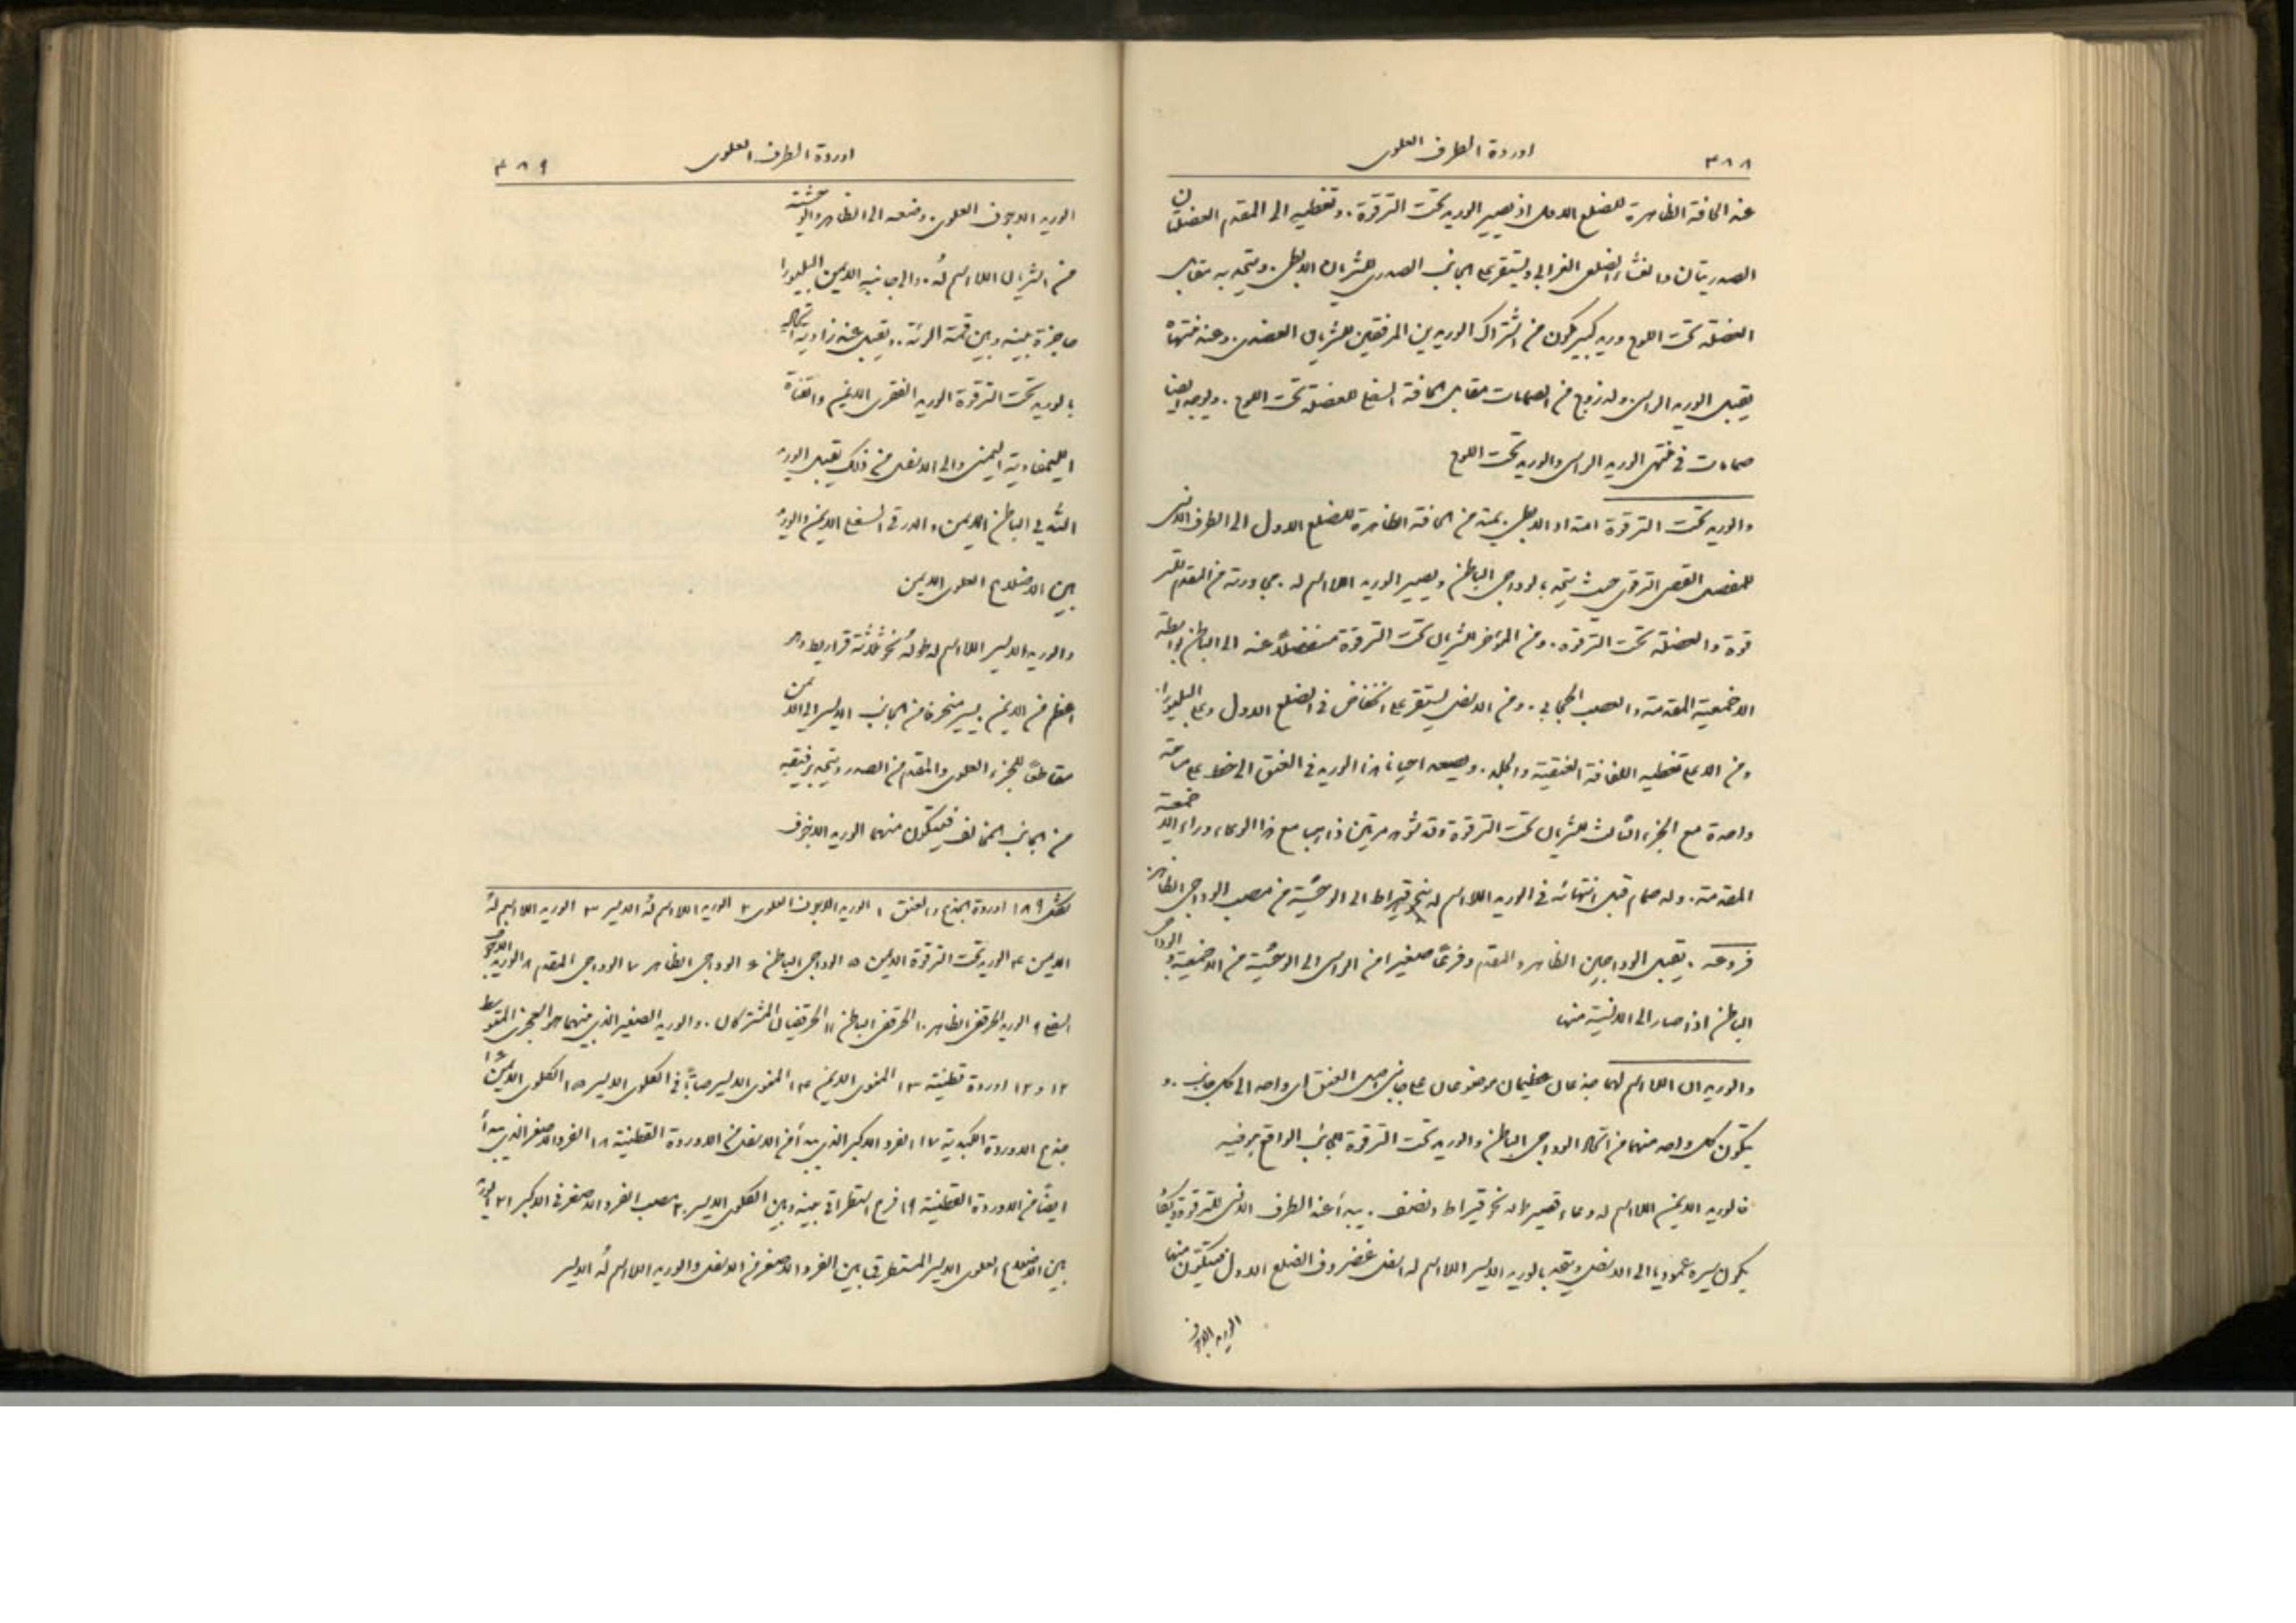 ٣٨٨ اوردة الطرف العلوي
عند الحافة الظاهرة للضلع الاول اذ يصير الوريد تحت الترقوة. وتغطيه الى المقدم العضلتان
الصدريتان والغشاء الضلعي الغرابي ويستقر على الجانب الصدري للشريان الابطي. ويتحد به مقابل
العضلة تحت اللوح وريد كبير يتكون من اشتراك الوريدين المرفقين للشريان العضدي. وعند منتهاه
يقبل الوريد الراسي وله زوج من الصمامات مقابل الحافة السفلى للعضلة تحت اللوح. ويوجد ايضا
صمامات في منتهى الوريد الراسي والوريد تحت اللوح
والوريد تحت الترقوة امتداد الابطي يمتد من الحافة الظاهرة للضلع الاول الى الطرف الانسي
للمفصل القصي الترقوي حيث يتحد بالوداجي الباطن ويصير الوريد اللااسم له. مجاورته من المقدم للتر
قوة والعضلة تحت الترقوة. ومن المؤخر للشريان تحت الترقوة منفصلاً عنه الى الباطن بواسطة
الاخمعية المقدمة والعصب الحجابي. ومن الاسفل يستقر على انخفاض في الضلع الاول وعلى البليورا
ومن الاعلى تغطيه اللفافة العنقية والجلد. ويصعد احيانا هذا الوريد في العنق الى خط على مسامتة
واحدة مع الجزء الثالث للشريان تحت الترقوة وقد شوهد مرتين ذاهبا مع هذا الوعاء وراء الاخمعية
المقدمة. وله صمام قبل انتهائه في الوريد اللااسم له بنحو قيراط الى الوحشية من مصب الوداجي الظاهر
فروعه. يقبل الوداجين الظاهر والمقدم وفرعًا صغيرا من الراسي الى الوحشية من الاخمعية والوداجي
الباطن اذ صار الى الانسية منها
والوريدان اللااسم لهما جذعان عظيمان موضوعان على جانبي اصل العنق اي واحد الى كل جانب. و
يتكون كل واحد منهما من اتحاد الوداجي الباطن والوريد تحت الترقوة للجانب الواقع هو فيه
فالوريد الايمن اللااسم له وعاء قصير طوله نحو قيراط ونصف. يبدأ عند الطرف الانسي للترقوة ويكاد
يكون سيره عموديا الى الاسفل ويتحد بالوريد الايسر اللااسم له اسفل غضروف الضلع الاول فيتكون منهما
الوريد الاجوف
اوردة الطرف العلوي ٣٨٩
الوريد الاجوف العلوي. وضعه الى الظاهر والوحشية
من الشريان اللااسم لهُ. والى جانبهِ الايمن البليورا
حاجزة بينه وبين قمة الرئة. ويقبل عند زاوية اتحاده
بالوريد تحت الترقوة الوريد الفقري الايمن والقناة
الليمفاوية اليمنى والى الاسفل من ذلك يقبل الوريد
الثديي الباطن الايمن والدرقي السفلي الايمن والوريد
بين الاضلاع العلوي الايمن
والوريد الايسر اللااسم له طولهُ نحو ثلاثة قراريط وهو
اعظم من الايمن يسير منحرفا من الجانب الايسر الى الايمن
مقاطعًا للجزء العلوي والمقدم من الصدر ويتحد برفيقه
من الجانب المخالف فيتكون منهما الوريد الاجوف
شكل ١٨٩ اوردة الجذع والعنق ١ الوريد الاجوف العلوي ٢ الوريد اللااسم لهُ الايسر ٣ الوريد اللااسم لهُ
الايمن ٤ الوريد تحت الترقوة الايمن ٥ الوداجي الباطن ٦ الوداجي الظاهر ٧ الوداجي المقدم ٨ الوريد الاجوف
السفلي ٩ الوريد الحرقفي الظاهر ١٠ الحرقفي الباطن ١١ الحرقفيان المشتركان. والوريد الصغير الذي بينهما هو العجزي المتوسط
١٢ و ١٢ اوردة قطنية ١٣ المنوي الايمن ١٤ المنوي الايسر صابًّا في الكلوي الايسر ١٥ الكلوي الايمن ١٦
جذع الاوردة الكبدية ١٧ الفرد الاكبر الذي يبدأ من الاسفل من الاوردة القطنية ١٨ الفرد الاصغر الذي يبدأ
ايضًا من الاوردة القطنية ١٩ فرع استطراقي بينه وبين الكلوي الايسر ٢٠ مصب الفرد الاصغر في الاكبر ٢١ الوريد
بين الاضلاع العلوي الايسر المستطرقي بين الفرد الاصغر من الاسفل والوريد اللااسم لهُ الايسر